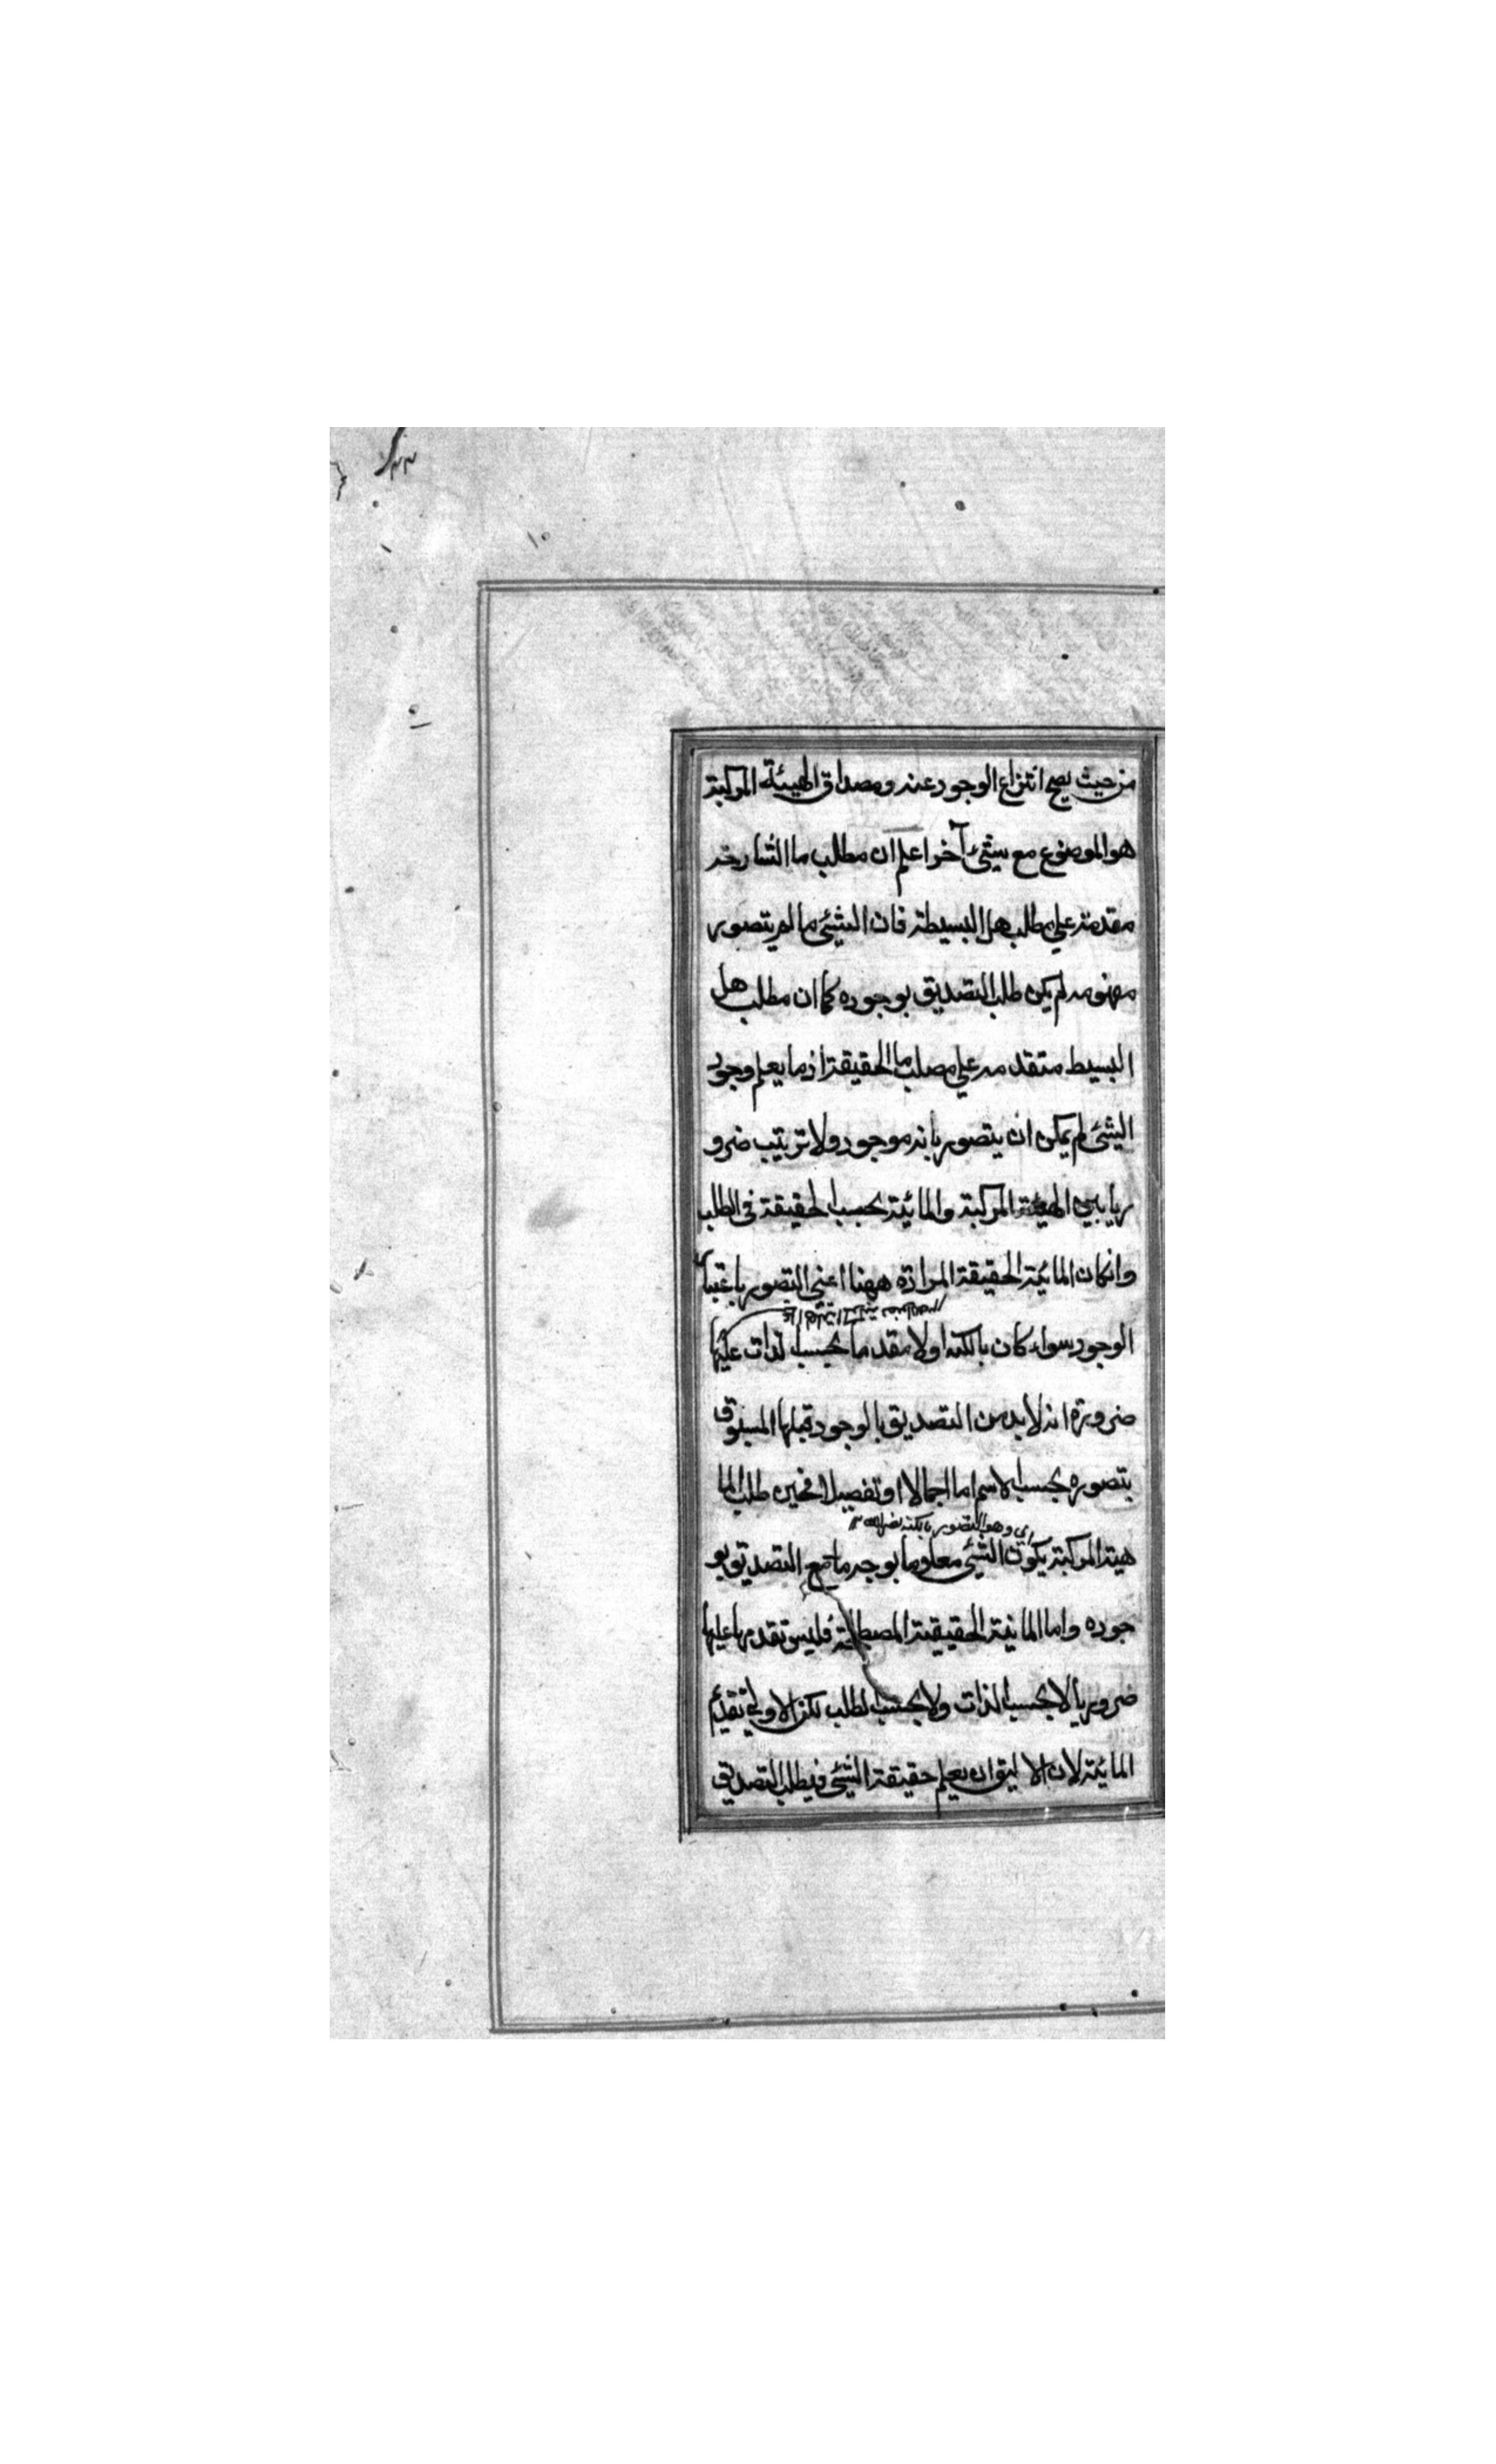 من حيث يصح انتزاع الوجود عنه ومصداق الهيئة المركبة
هو الموضوع مع شئ آخر اعلم ان مطلب ما الشارحه
مقدمة على مطلب هل البسيطة فان الشئ ما لم يتصور
مفهومه لم يكن طلب التصديق بوجوده كما ان مطلب هل
البسيط متقدمه على مصلب ما الحقيقة اذ ما يعلم وجود
الشئ لم يمكن ان يتصور بانه موجود ولا ترتيب ضرو
ريا بين الهيئة المركبة والمائية بحسب الحقيقة فى الطلب
وانكان المائية الحقيقة المرادة ههنا اعنى التصور باعتبار
الوجود سواء كان بالكنه اولا مقدما بحسب الذات عليها
ضرورة انه لابد من التصديق بالوجود قبلها المسبوق
بتصوره بحسب الاسم اما اجمالا او تفصيلا فحين طلب الما
اى وهو التصور بالكنه
هية المركبة يكون الشئ معلوما بوجه ما مع التصديق بو
جوده واما المائية الحقيقية المصطلحة فليس تقدمها عليها
ضروريا لا بحسب الذات ولا بحسب الطلب لكن الاولى تقديم
المائية لان الاليق ان يعلم حقيقة الشئ فيطلب التصديق